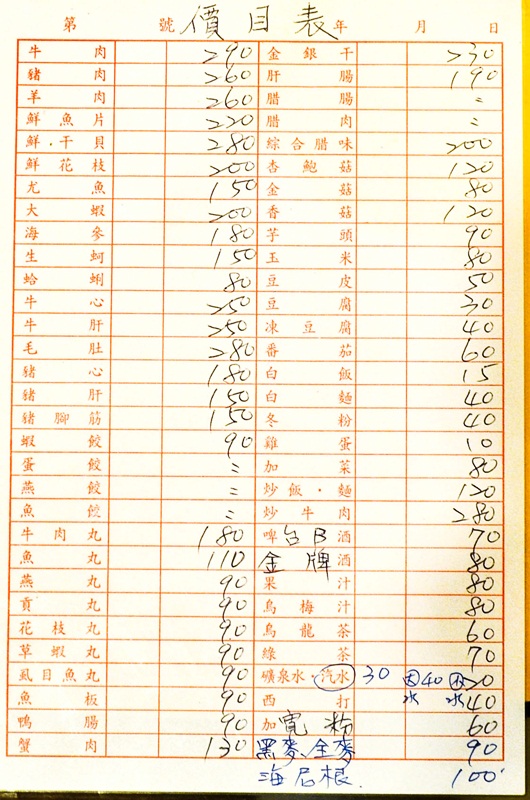 第 號 價目表 年 月 日
牛肉 290 金銀干 230
豬肉 260 肝腸 190
羊肉 260 腊腸 〃
鮮魚片 220 腊肉 〃
鮮·干貝 280 綜合腊味 200
鮮花枝 200 杏鮑菇 120
尤魚 150 金菇 80
大蝦 200 香菇 120
海參 180 芋頭 90
生蚵 150 玉米 80
蛤蜊 80 豆皮 50
牛心 250 豆腐 30
牛肝 250 凍豆腐 40
毛肚 280 番茄 60
豬心 180 白飯 15
豬肝 150 白麵 40
豬腳筋 150 冬粉 40
蝦餃 90 雞蛋 10
蛋餃 〃 加菜 80
燕餃 〃 炒飯·麵 120
魚餃 〃 炒牛肉 280
牛肉丸 180 啤台B酒 70
魚丸 110 金牌酒 80
燕丸 90 果汁 80
貢丸 90 烏梅汁 80
花枝丸 90 烏龍茶 60
草蝦丸 90 綠茶 70
虱目魚丸 90 礦泉水·汽水 30 大水 40 小水 20
魚板 90 西打 40
鴨腸 90 加寬粉 60
蟹肉 130 黑麥、全麥 90
海尼根 100